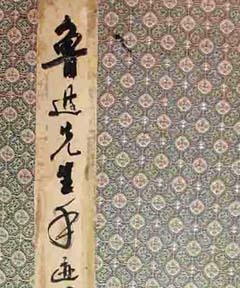 魯迅先生手迹